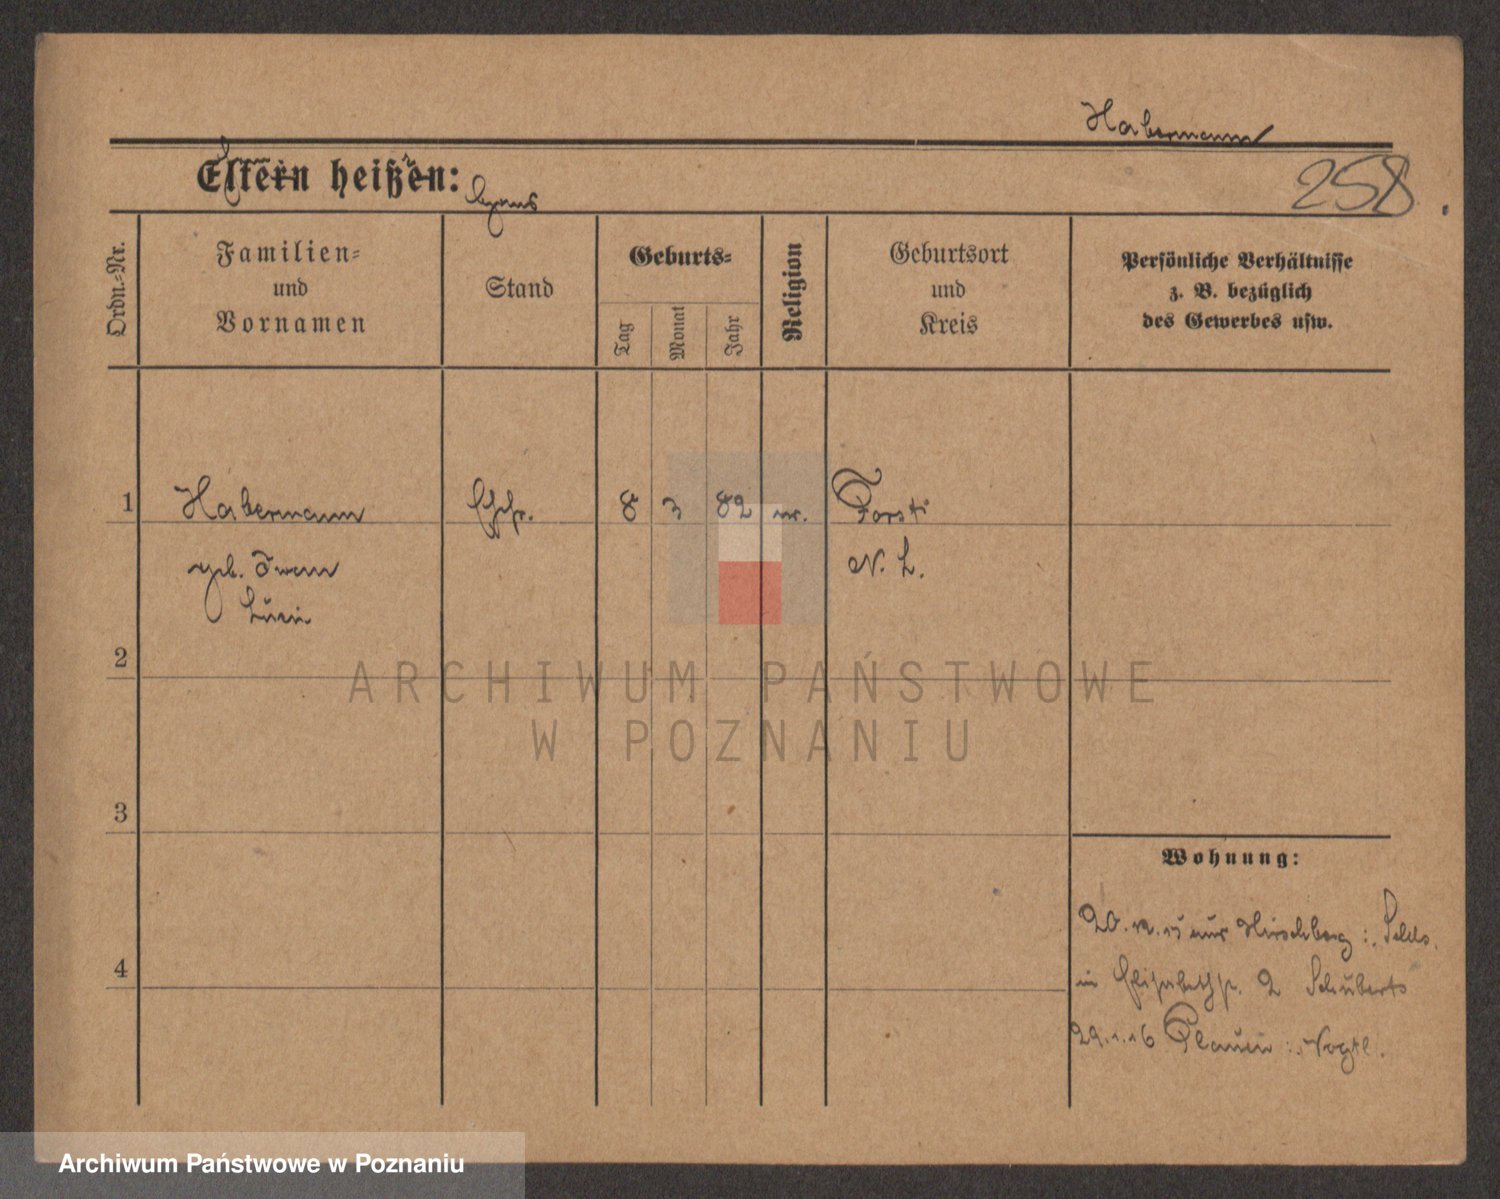 Habermann
258.
Eltern heißen:
Ordn.-Nr.
Familien-
und
Vornamen
Stand
Geburts-
Tag
Monat
Jahr
Religion
Geburtsort
und
Kreis
Persönliche Verhältnisse
z. B. bezüglich
des Gewerbes usw.
1 Habermann Ehefr. 8 3 82 Forst
geb. N. L.
2
ARCHIWUM PAŃSTWOWE
W POZNANIU
3
Wohnung:
20. 12. 15 aus Hirschberg i. Schles.
in Elisabethstr. 2 Schubert
4
29.1.16 Plauen i. Vogtl.
Archiwum Państwowe w Poznaniu